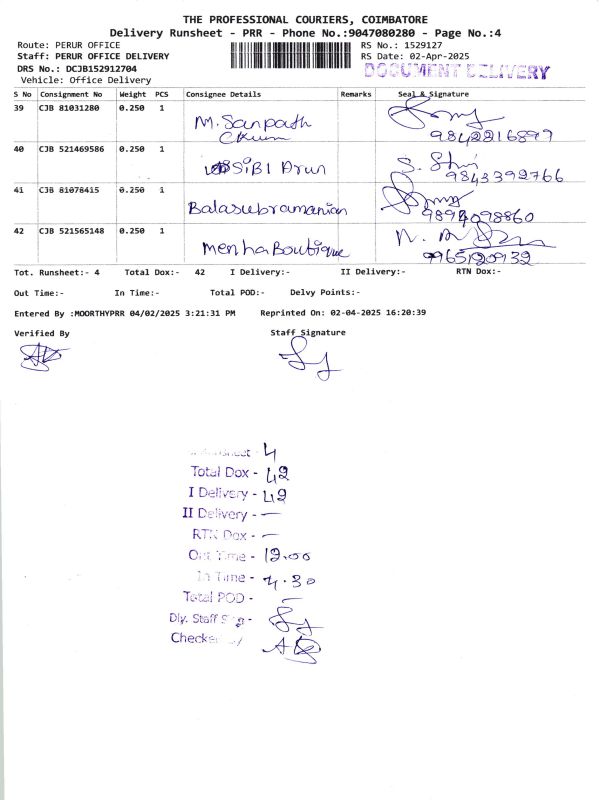 THE PROFESSIONAL COURIERS, COIMBATORE
Delivery Runsheet - PRR - Phone No.:9047080280 - Page No.:4
Route: PERUR OFFICE RS No.: 1529127
Staff: PERUR OFFICE DELIVERY RS Date: 02-Apr-2025
DRS No.: DCJB152912704 DOCUMENT DELIVERY
Vehicle: Office Delivery
S No Consignment No Weight PCS Consignee Details Remarks Seal & Signature
39 CJB 81031280 0.250 1 M. Sanpath 9842216899
40 CJB 521469586 0.250 1 SiBi Arun 9843392766
41 CJB 81078415 0.250 1 Balasubramanian 9894098860
42 CJB 521565148 0.250 1 Menha Boutique 9965120932
Tot. Runsheet:- 4 Total Dox:- 42 I Delivery:- II Delivery:- RTN Dox:-
Out Time:- In Time:- Total POD:- Delvy Points:-
Entered By :MOORTHYPRR 04/02/2025 3:21:31 PM Reprinted On: 02-04-2025 16:20:39
Verified By Staff Signature
4
Total Dox - 42
I Delivery - 42
II Delivery - —
RTN Dox - —
Out Time - 12.00
In Time - 4.30
Total POD - —
Dly. Staff Sig -
Checked By